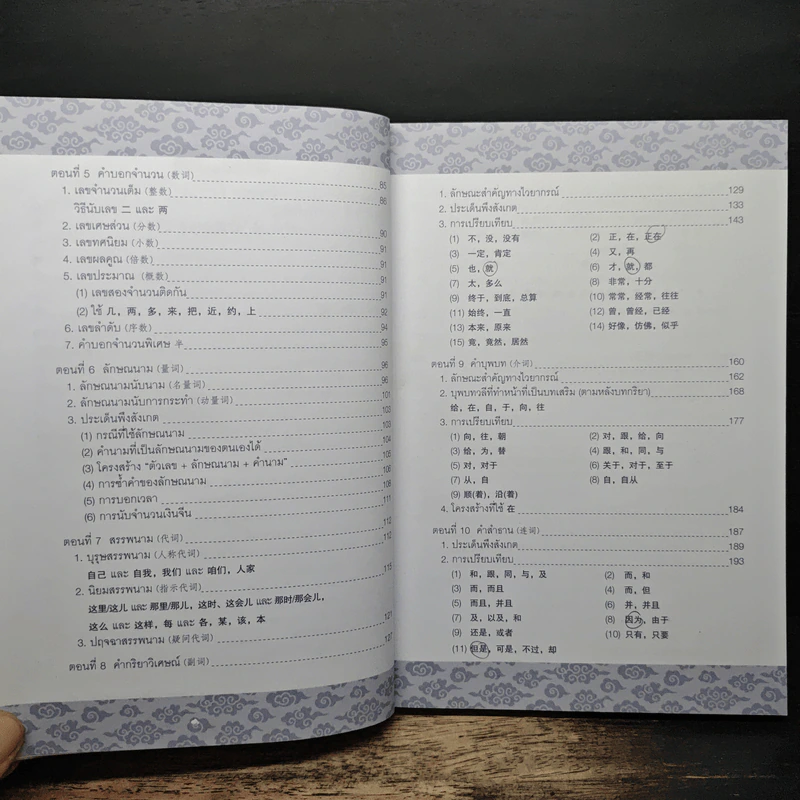 ตอนที่ 5 คำบอกจำนวน (数词) 85
1. เลขจำนวนเต็ม (整数) 86
วิธีนับเลข 二 และ 两
2. เลขเศษส่วน (分数) 90
3. เลขทศนิยม (小数) 91
4. เลขผลคูณ (倍数) 91
5. เลขประมาณ (概数) 91
(1) เลขสองจำนวนติดกัน 91
(2) ใช้ 几, 两, 多, 来, 把, 近, 约, 上 92
6. เลขลำดับ (序数) 94
7. คำบอกจำนวนพิเศษ 半 95
ตอนที่ 6 ลักษณนาม (量词) 96
1. ลักษณนามนับนาม (名量词) 96
2. ลักษณนามนับการกระทำ (动量词) 101
3. ประเด็นพึงสังเกต 103
(1) กรณีที่ใช้ลักษณนาม 103
(2) คำนามที่เป็นลักษณนามของตนเองได้ 104
(3) โครงสร้าง "ตัวเลข + ลักษณนาม + คำนาม" 105
(4) การซ้ำคำของลักษณนาม 106
(5) การบอกเวลา 108
(6) การนับจำนวนเงินจีน 111
ตอนที่ 7 สรรพนาม (代词) 112
1. บุรุษสรรพนาม (人称代词) 112
自己 และ 自我, 我们 และ 咱们, 人家
2. นิยมสรรพนาม (指示代词) 115
这里/这儿 และ 那里/那儿, 这时, 这会儿 และ 那时/那会儿,
这么 และ 这样, 每 และ 各, 某, 该, 本
3. ปฤจฉาสรรพนาม (疑问代词) 121
ตอนที่ 8 คำกริยาวิเศษณ์ (副词) 127
1. ลักษณะสำคัญทางไวยากรณ์ 129
2. ประเด็นพึงสังเกต 133
3. การเปรียบเทียบ 143
(1) 不, 没, 没有 (2) 正, 在, 正在
(3) 一定, 肯定 (4) 又, 再
(5) 也, 就 (6) 才, 就, 都
(7) 太, 多么 (8) 非常, 十分
(9) 终于, 到底, 总算 (10) 常常, 经常, 往往
(11) 始终, 一直 (12) 曾, 曾经, 已经
(13) 本来, 原来 (14) 好像, 仿佛, 似乎
(15) 竟, 竟然, 居然
ตอนที่ 9 คำบุพบท (介词) 160
1. ลักษณะสำคัญทางไวยากรณ์ 162
2. บุพบทวลีที่ทำหน้าที่เป็นบทเสริม (ตามหลังบทกริยา) 168
给, 在, 自, 于, 向, 往
3. การเปรียบเทียบ 177
(1) 向, 往, 朝 (2) 对, 跟, 给, 向
(3) 给, 为, 替 (4) 跟, 和, 同, 与
(5) 对, 对于 (6) 关于, 对于, 至于
(7) 从, 自 (8) 自, 自从
(9) 顺(着), 沿(着)
4. โครงสร้างที่ใช้ 在 184
ตอนที่ 10 คำสันธาน (连词) 187
1. ประเด็นพึงสังเกต 189
2. การเปรียบเทียบ 193
(1) 和, 跟, 同, 与, 及 (2) 而, 和
(3) 而, 而且 (4) 而, 但
(5) 而且, 并且 (6) 并, 并且
(7) 及, 以及, 和 (8) 因为, 由于
(9) 还是, 或者 (10) 只有, 只要
(11) 但是, 可是, 不过, 却